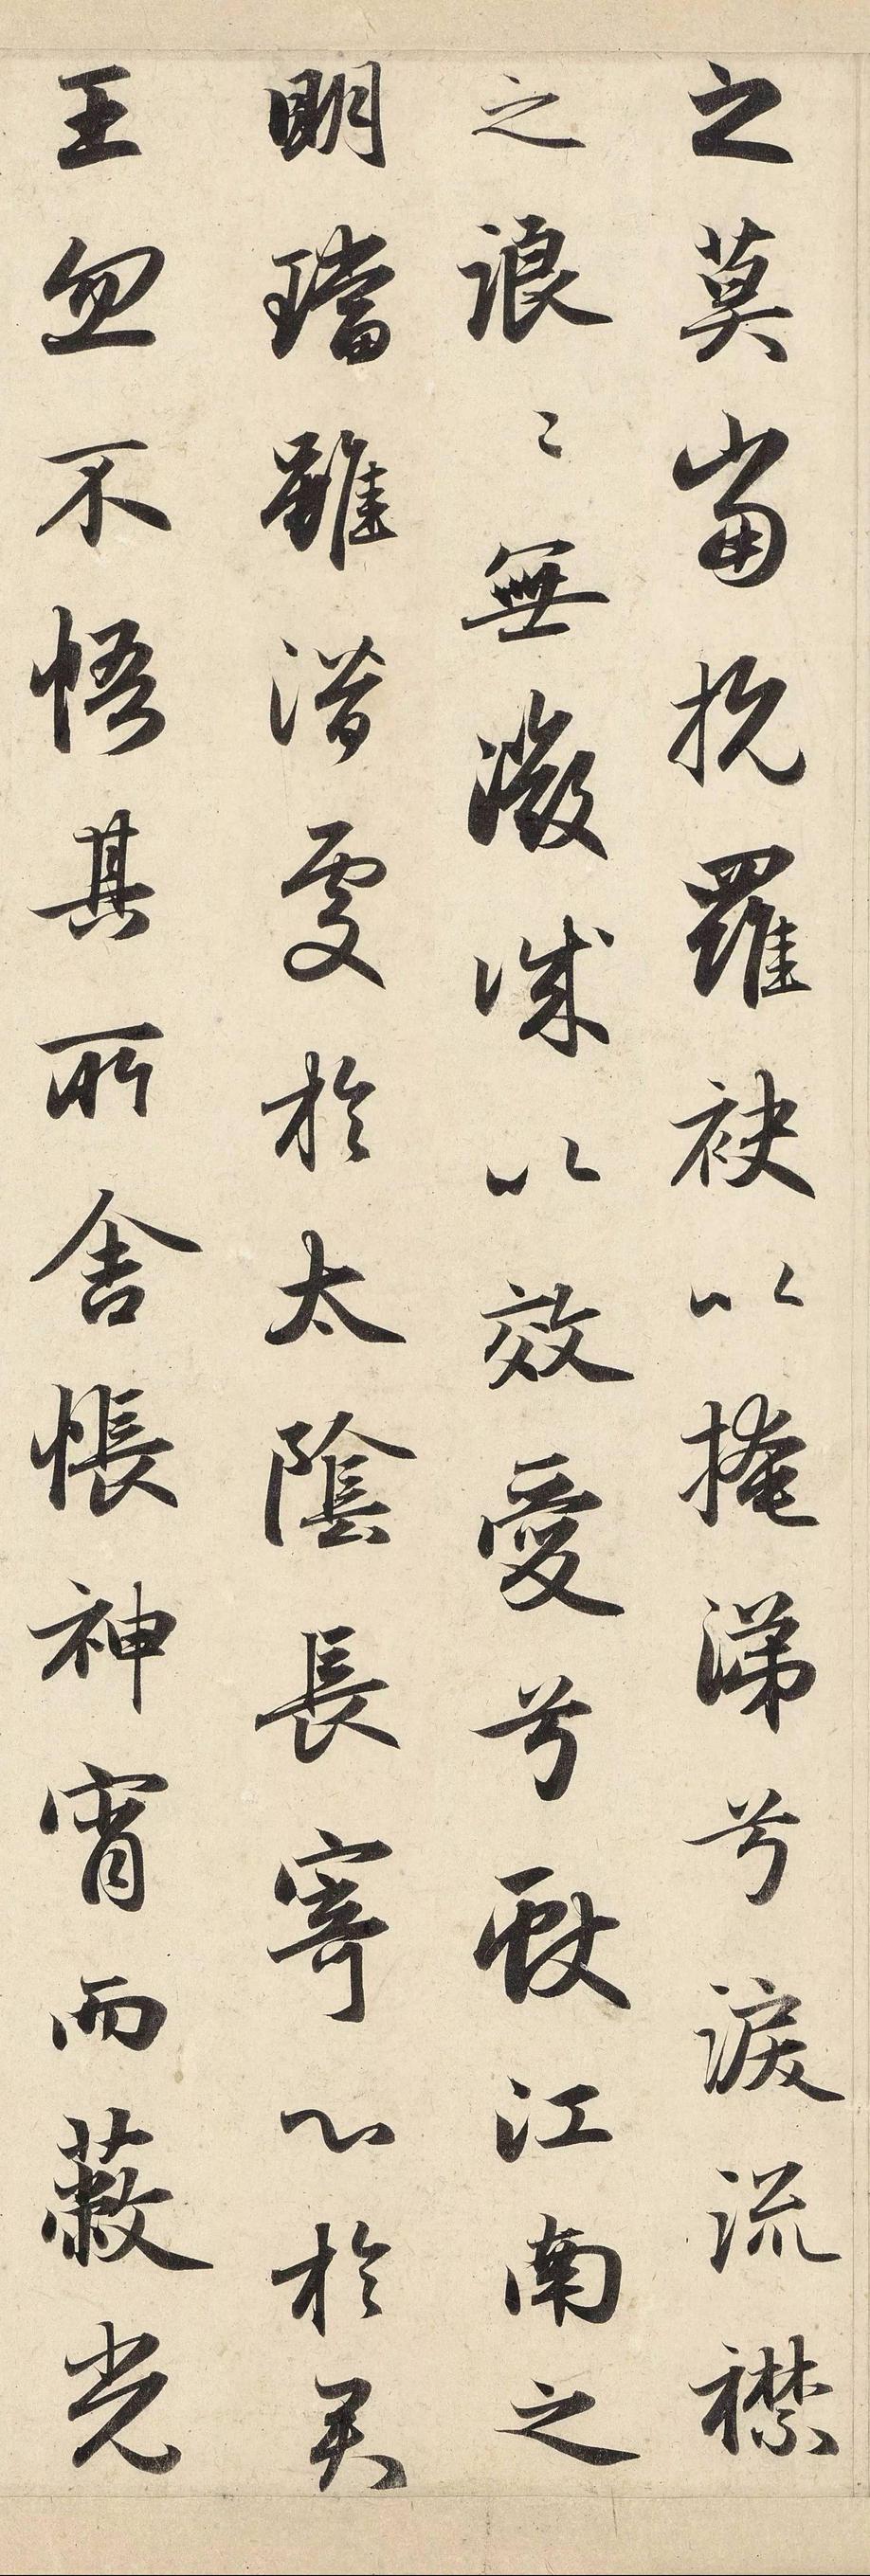 之莫當抗羅袂以掩涕兮淚流襟
之浪〻無微誠以效愛兮獻江南之
明璫雖潛處於太陰長寄心於君
王忽不悟其所舍悵神宵而蔽光